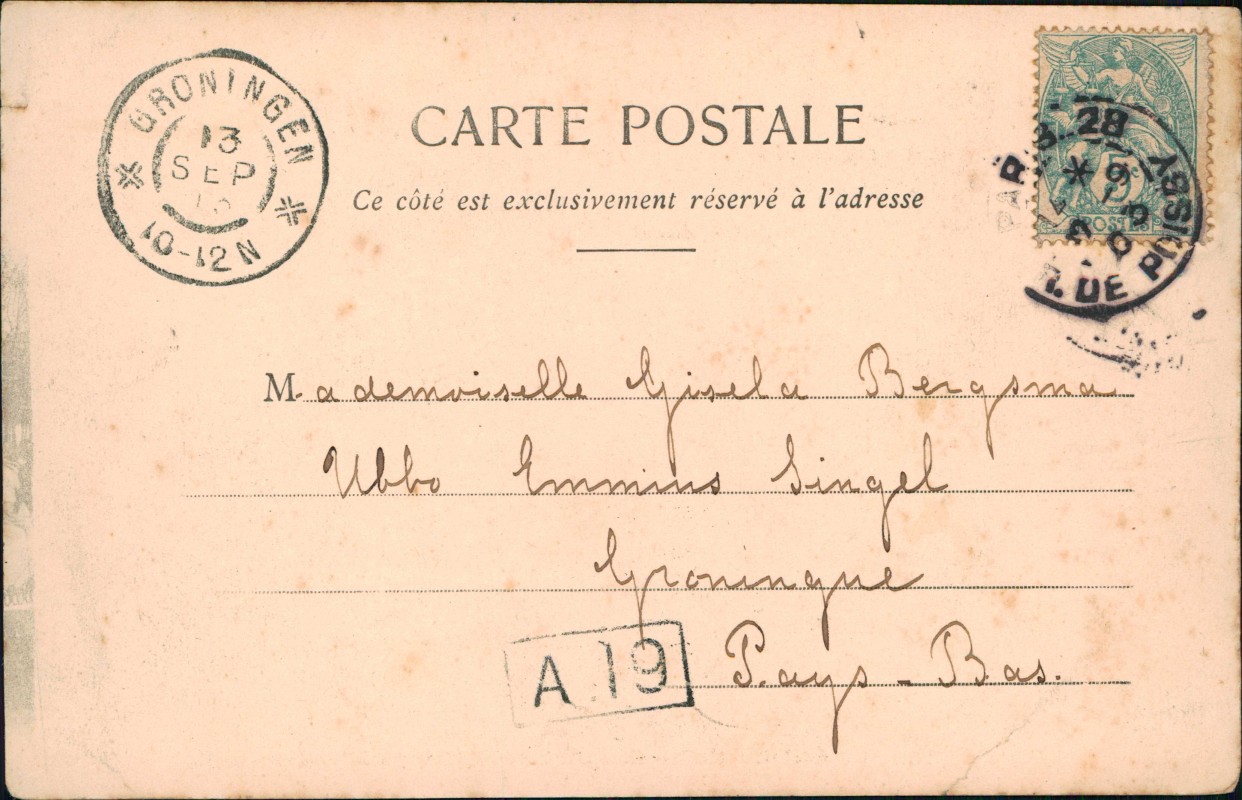 CARTE POSTALE
Ce côté est exclusivement réservé à l'adresse
GRONINGEN
13
SEP
10-12 N
PARIS 28
R. DE POISSY
5c
POSTES
Mademoiselle Gisela Bergsma
Ubbo Emmius Singel
Groningue
Pays-Bas.
A 19